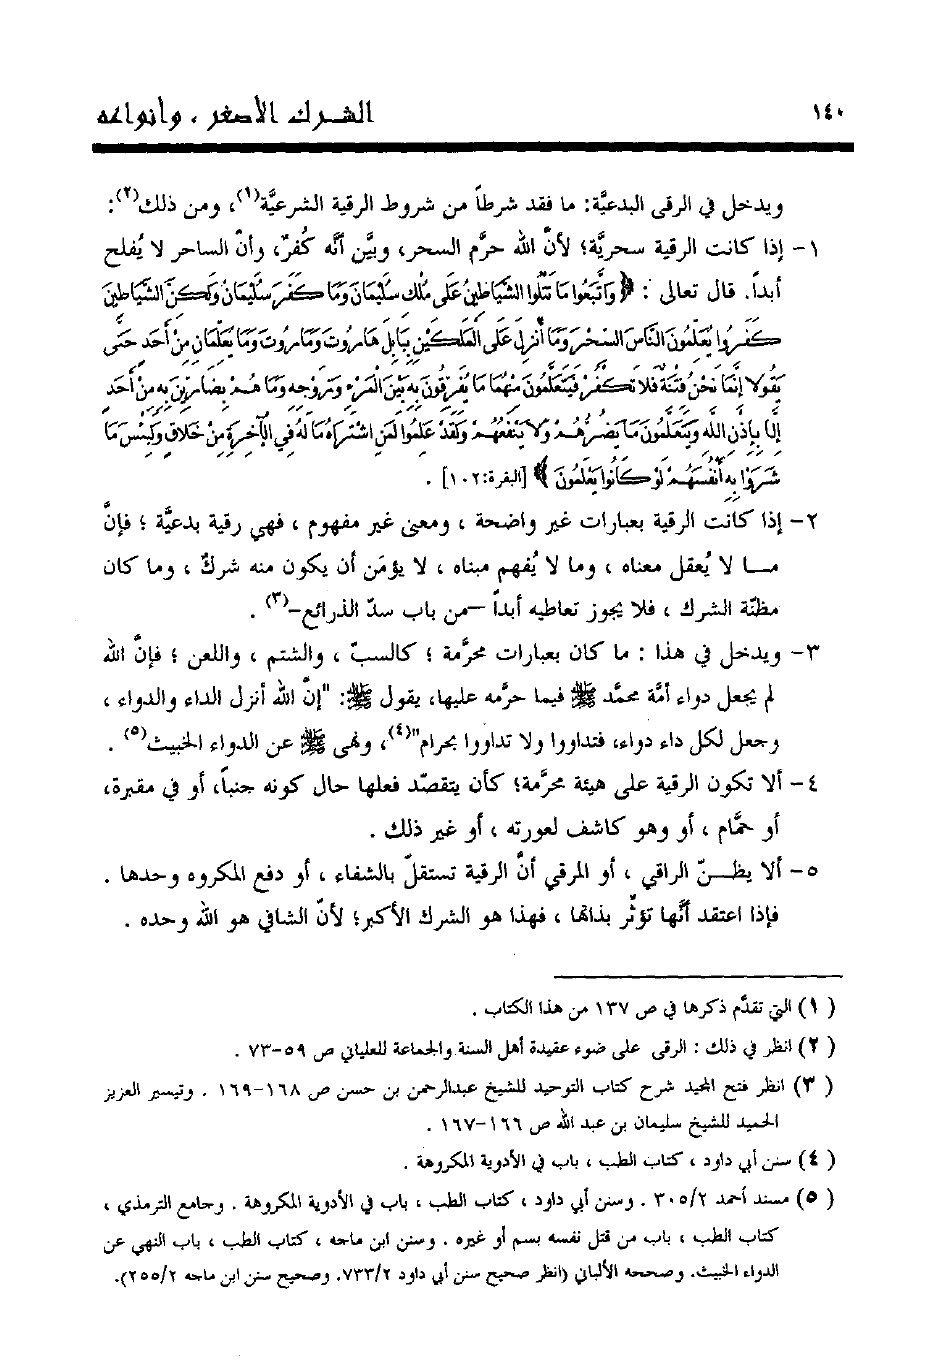 ١٤٠
الشرك الأصغر ، وأنواعه
ويدخل في الرقى البدعيَّة: ما فقد شرطاً من شروط الرقية الشرعيَّة(١)، ومن ذلك(٢):
١- إذا كانت الرقية سحريَّة؛ لأنَّ الله حرَّم السحر، وبيَّن أنَّه كُفرٌ، وأنّ الساحر لا يُفلح
أبداً. قال تعالى : ﴿وَاتَّبَعُوا مَا تَتْلُوا الشَّيَاطِينُ عَلَى مُلْكِ سُلَيْمَانَ وَمَا كَفَرَ سُلَيْمَانُ وَلَكِنَّ الشَّيَاطِينَ
كَفَرُوا يُعَلِّمُونَ النَّاسَ السِّحْرَ وَمَا أُنزِلَ عَلَى الْمَلَكَيْنِ بِبَابِلَ هَارُوتَ وَمَارُوتَ وَمَا يُعَلِّمَانِ مِنْ أَحَدٍ حَتَّى
يَقُولَا إِنَّمَا نَحْنُ فِتْنَةٌ فَلَا تَكْفُرْ فَيَتَعَلَّمُونَ مِنْهُمَا مَا يُفَرِّقُونَ بِهِ بَيْنَ الْمَرْءِ وَزَوْجِهِ وَمَا هُمْ بِضَارِّينَ بِهِ مِنْ أَحَدٍ
إِلَّا بِإِذْنِ اللَّهِ وَيَتَعَلَّمُونَ مَا يَضُرُّهُمْ وَلَا يَنْفَعُهُمْ وَلَقَدْ عَلِمُوا لَمَنِ اشْتَرَاهُ مَا لَهُ فِي الْآخِرَةِ مِنْ خَلَاقٍ وَلَبِئْسَ مَا
شَرَوْا بِهِ أَنْفُسَهُمْ لَوْ كَانُوا يَعْلَمُونَ﴾ [البقرة:١٠٢] .
٢- إذا كانت الرقية بعبارات غير واضحة ، ومعنى غير مفهوم ، فهي رقية بدعيَّة ؛ فإنَّ
مـا لا يُعقل معناه ، وما لا يُفهم مبناه ، لا يؤمَن أن يكون منه شركٌ ، وما كان
مظنّة الشرك ، فلا يجوز تعاطيه أبداً –من باب سدّ الذرائع–(٣) .
٣- ويدخل في هذا : ما كان بعبارات محرَّمة ؛ كالسبّ ، والشتم ، واللعن ؛ فإنَّ الله
لم يجعل دواء أمَّة محمَّد ﷺ فيما حرَّمه عليها، يقول ﷺ: "إنَّ الله أنزل الداء والدواء ،
وجعل لكل داء دواء، فتداووا ولا تداووا بحرام"(٤)، ونهى ﷺ عن الدواء الخبيث(٥) .
٤- ألا تكون الرقية على هيئة محرَّمة؛ كأن يتقصّد فعلها حال كونه جنباً، أو في مقبرة،
أو حمَّام ، أو وهو كاشف لعورته ، أو غير ذلك .
٥- ألا يظـنّ الراقي ، أو المرقي أنَّ الرقية تستقلّ بالشفاء ، أو دفع المكروه وحدها .
فإذا اعتقد أنَّها تؤثّر بذاتها ، فهذا هو الشرك الأكبر؛ لأنّ الشافي هو الله وحده .
( ١) التي تقدَّم ذكرها في ص ١٣٧ من هذا الكتاب .
( ٢) انظر في ذلك : الرقى على ضوء عقيدة أهل السنة والجماعة للعلياني ص ٥٩-٧٣ .
( ٣) انظر فتح المجيد شرح كتاب التوحيد للشيخ عبدالرحمن بن حسن ص ١٦٨-١٦٩ . وتيسير العزيز
الحميد للشيخ سليمان بن عبد الله ص ١٦٦-١٦٧ .
( ٤) سنن أبي داود ، كتاب الطب ، باب في الأدوية المكروهة .
( ٥) مسند أحمد ٣٠٥/٢ . وسنن أبي داود ، كتاب الطب ، باب في الأدوية المكروهة . وجامع الترمذي ،
كتاب الطب ، باب من قتل نفسه بسم أو غيره . وسنن ابن ماجه ، كتاب الطب ، باب النهي عن
الدواء الخبيث. وصححه الألباني (انظر صحيح سنن أبي داود ٧٣٣/٢. وصحيح سنن ابن ماجه ٢٥٥/٢).